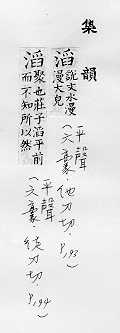 集韻
滔 說文水漫
漫大皃
平聲
(六豪.他刀切.P.193
滔 聚也莊子滔乎前
而不知所以然
平聲
(六豪.徒刀切.P.194